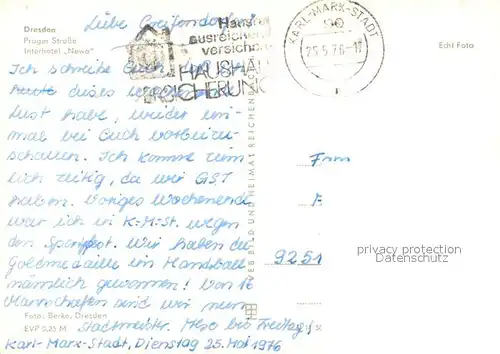 Dresden
Prager Straße
Interhotel „Newa"
Echt Foto
Liebe Greifendorfer!
Hausrat
ausreichend
versichern
HAUSHALT
VERSICHERUNG
KARL-MARX-STADT
90
25.5.76-17
Ich schreibe Euch, daß ich
heute dieses
Lust habe, wieder ein-
mal bei Euch vorbeizu-
schauen. Ich komme ziem-
lich zeitig, da wir GST
haben. Voriges Wochenende
war ich in K.-M.-St. wegen
den Sportfest. Wir haben die
Goldmedaille im Handball
nämlich gewonnen! Von 16
Mannschaften sind wir nun
Stadtmeister. Also bis Freitag!
Karl-Marx-Stadt, Dienstag 25. Mai 1976
Fam
F
9251
VEB BILD UND HEIMAT REICHENBACH
Foto: Berke, Dresden
EVP 0,25 M
privacy protection
Datenschutz